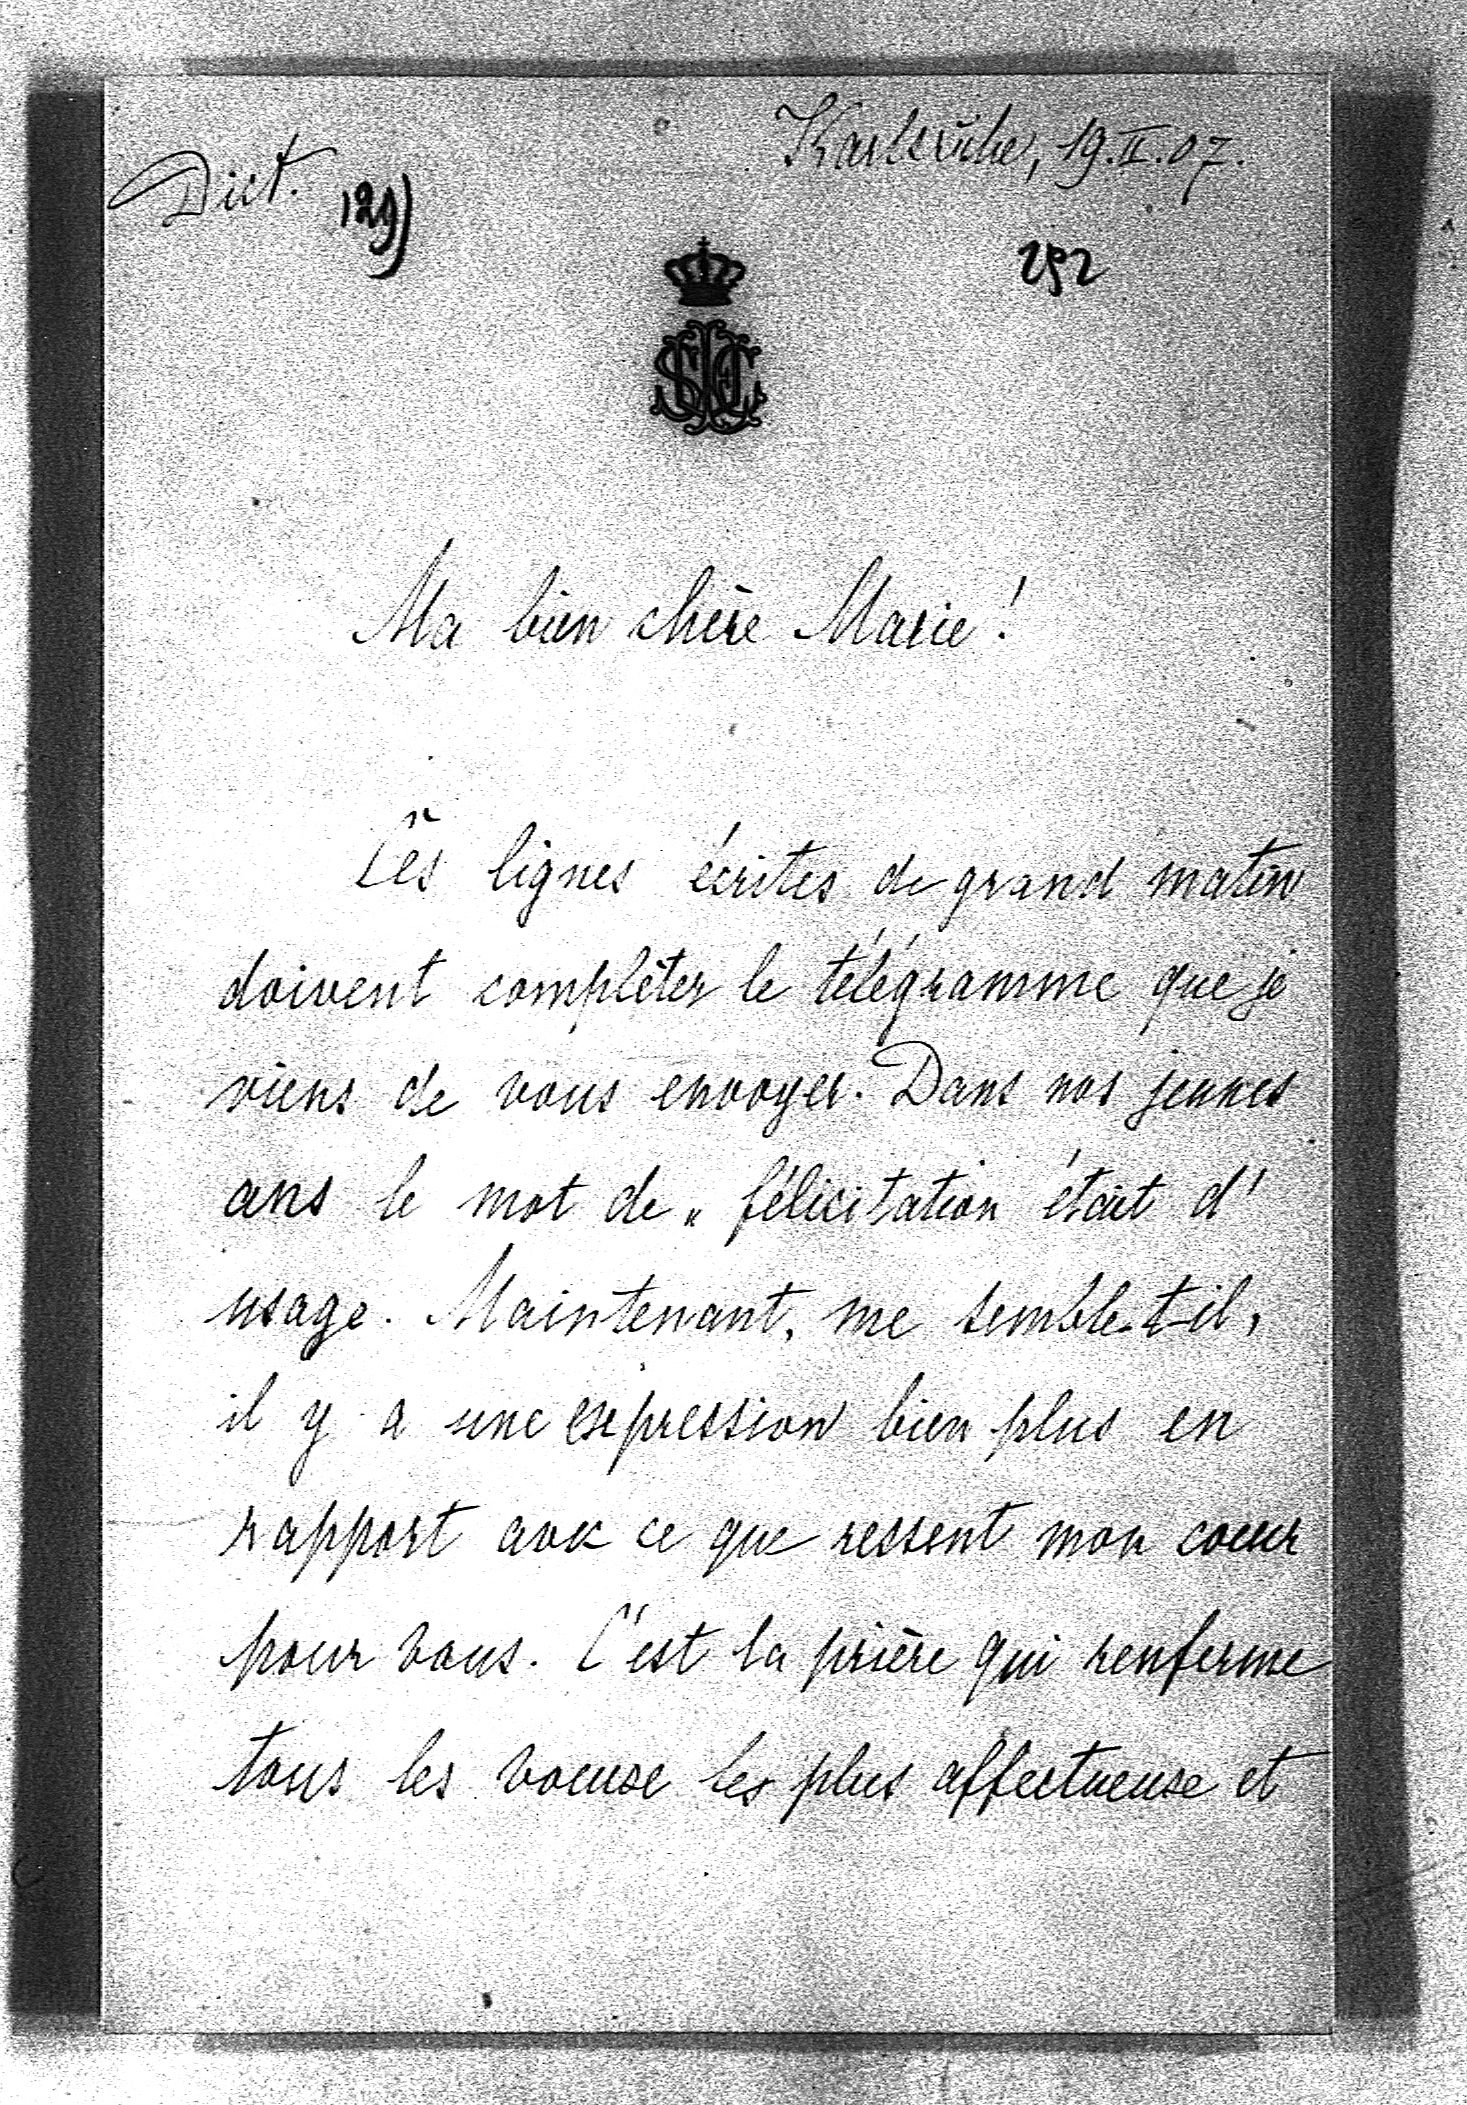 Karlsruhe, 19.II.07.
Dict. 129)
252
Ma bien chère Marie!
Ces lignes écrites de grand matin
doivent complèter le télégramme que je
viens de vous envoyer. Dans nos jeunes
ans le mot de „ félicitation était d'
usage. Maintenant, me semble-t-il,
il y a une expression bien plus en
rapport avec ce que ressent mon coeur
pour vous. C'est la prière qui renferme
tous les voeux les plus affectueux et